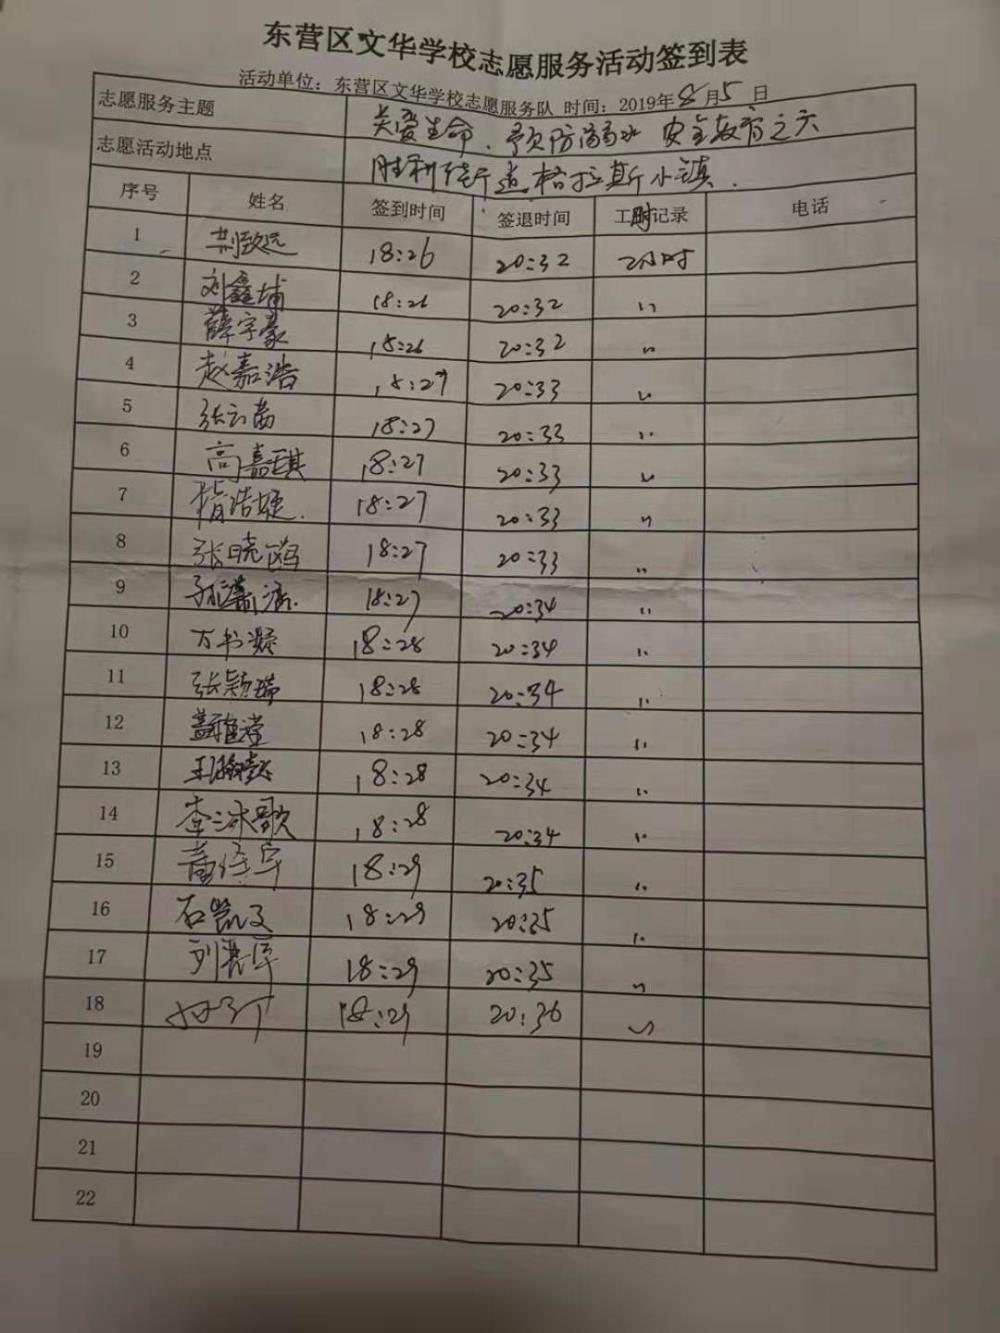 东营区文华学校志愿服务活动签到表
活动单位：东营区文华学校志愿服务队 时间：2019年8月5日
志愿服务主题 关爱生命、预防溺水 安全教育之六
志愿活动地点 胜利街道格拉斯小镇.
序号 姓名 签到时间 签退时间 工时记录 电话
1 荆致远 18:26 20:32 2小时
2 刘鑫埔 18:26 20:32 〃
3 薛宇豪 18:26 20:32 〃
4 赵嘉浩 18:27 20:33 〃
5 18:27 20:33 〃
6 高嘉琪 18:27 20:33 〃
7 18:27 20:33 〃
8 张晓鸥 18:27 20:33 〃
9 18:27 20:34 〃
10 万书凝 18:28 20:34 〃
11 张颖瑞 18:28 20:34 〃
12 18:28 20:34 〃
13 18:28 20:34 〃
14 李冰歌 18:28 20:34 〃
15 18:29 20:35 〃
16 石凯文 18:29 20:35 〃
17 18:29 20:35 〃
18 18:29 20:36 〃
19
20
21
22